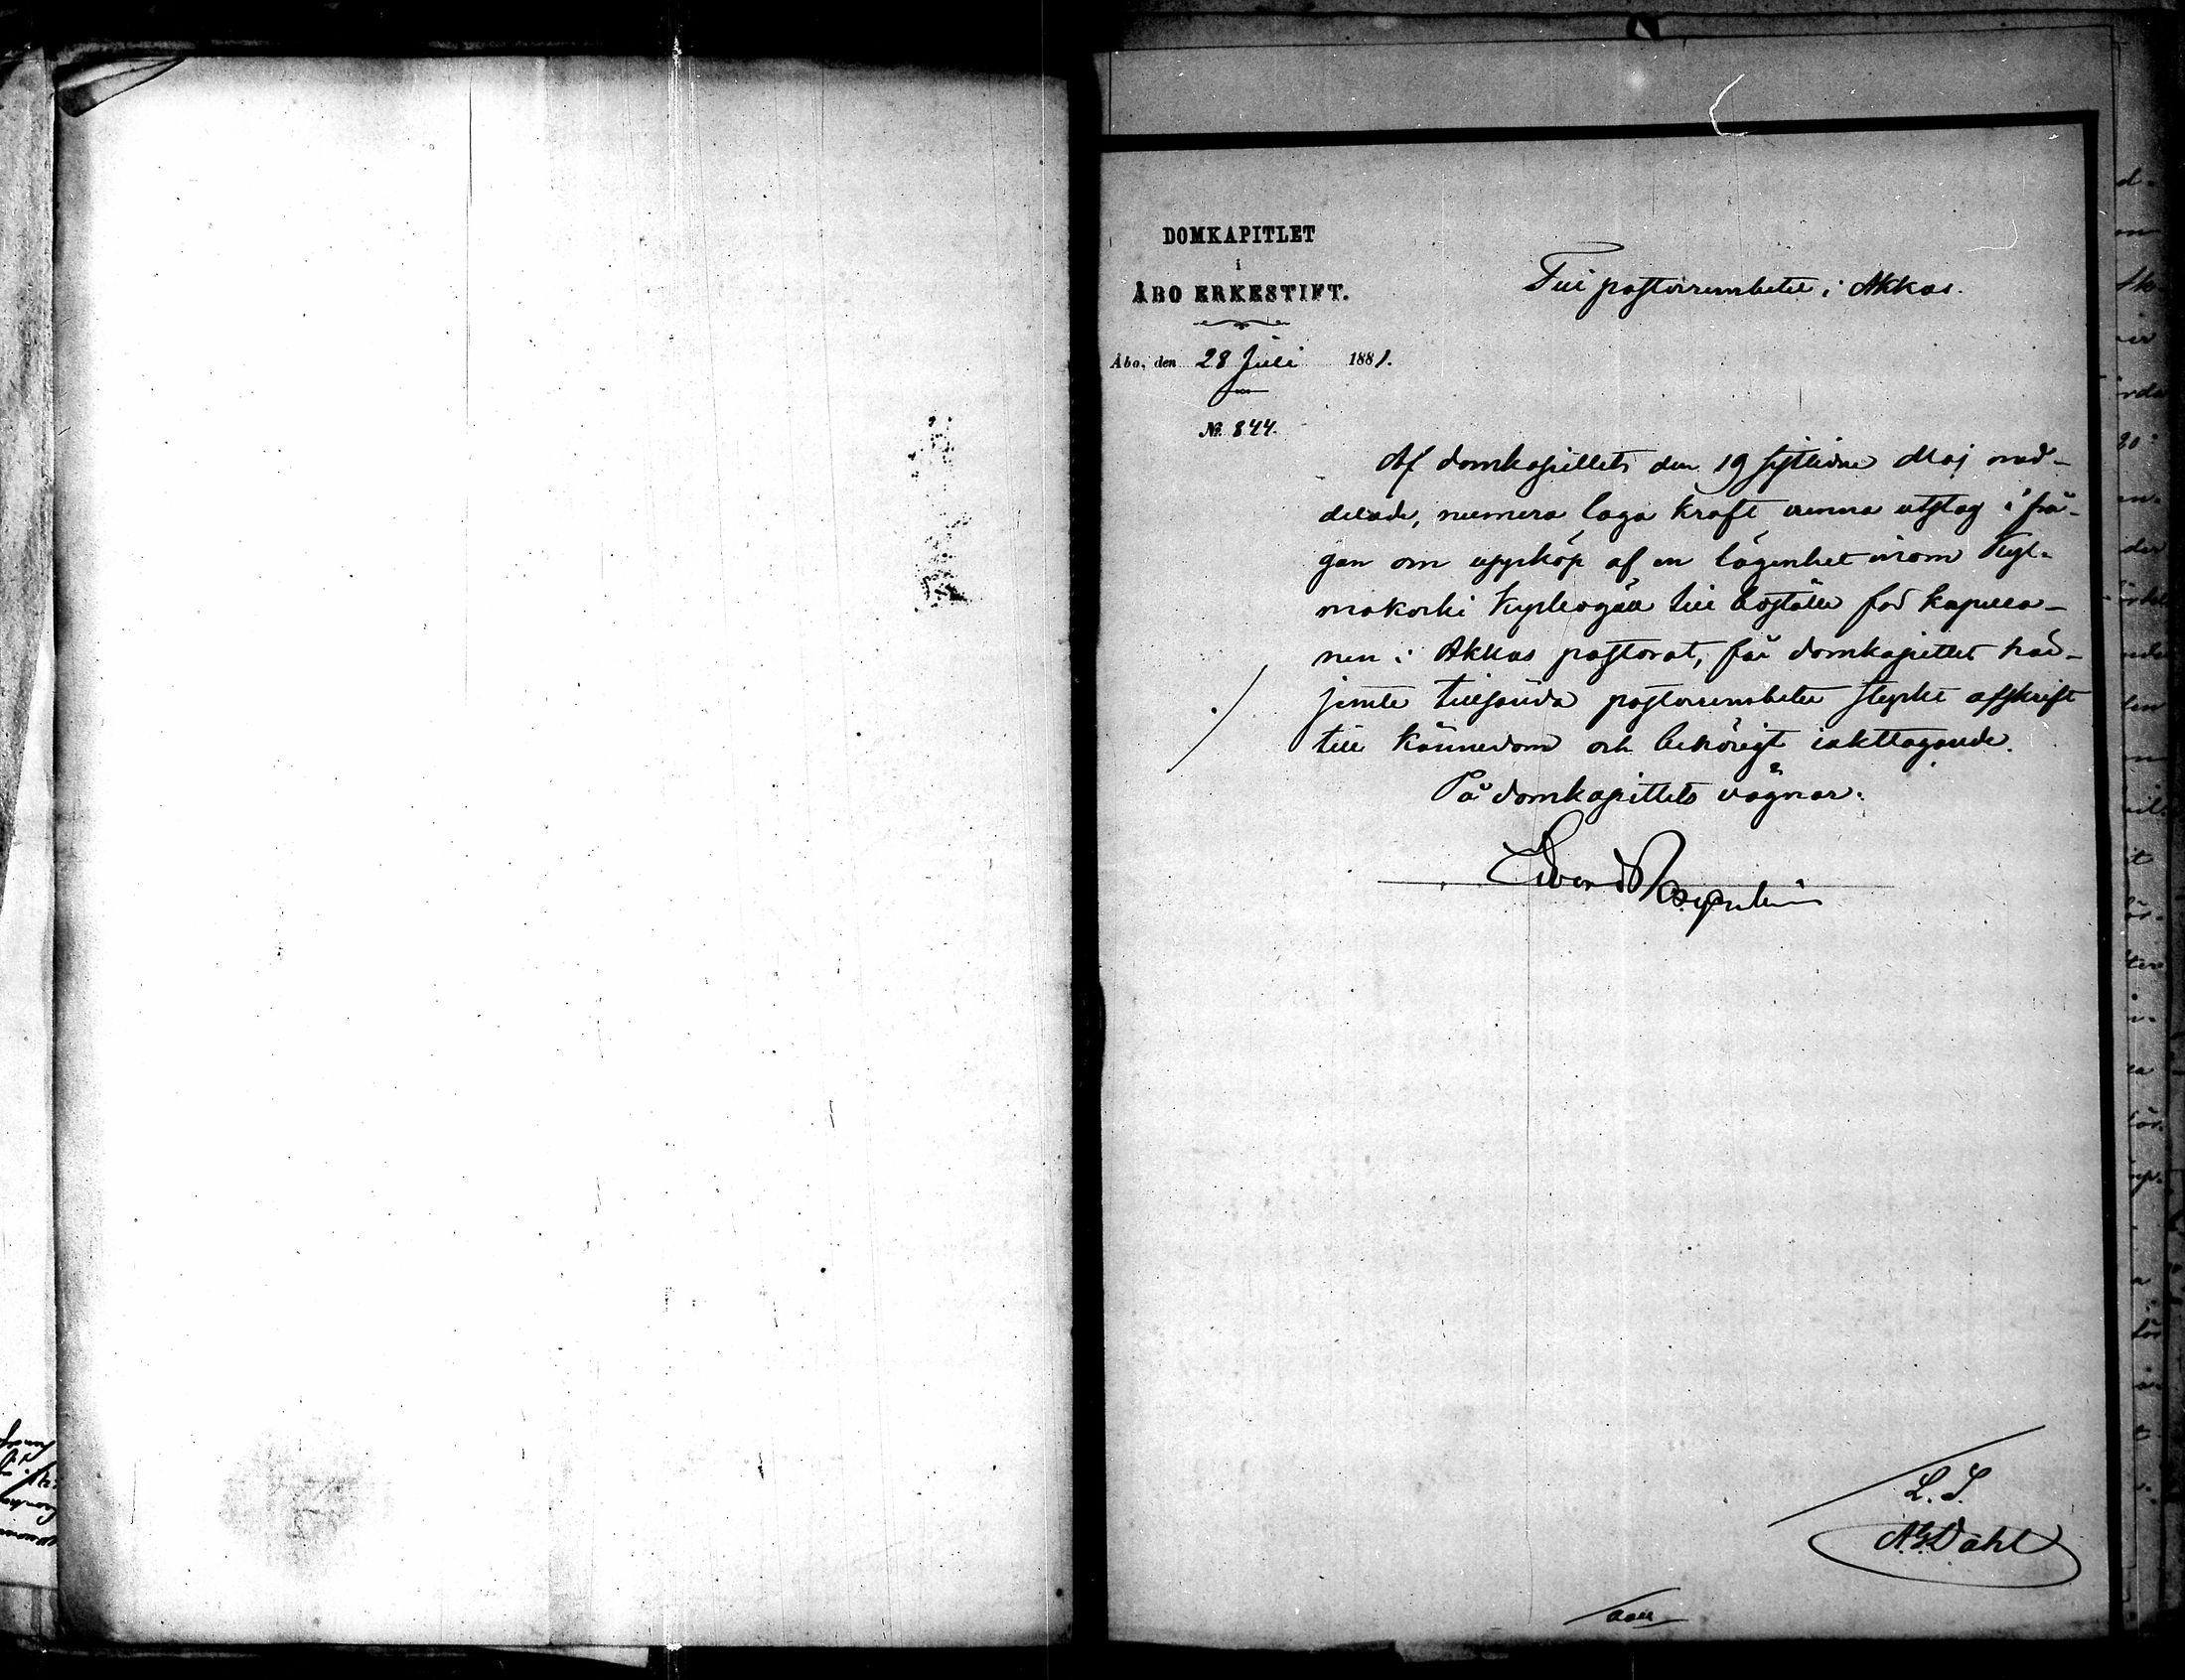 DOMKAPITLET
i
ÅBO ERKESTIFT.
Åbo, den 28 Juli 1881.
№ 844.
Till pastorsembetet i Akkas.
Af domkapitlets den 19 sistlidne Maj med-
delade, numera laga kraft vunna utslag i frå-
gan om uppköp af en lägenhet inom Kyl-
mäkoski kapellgäll till boställe för kapella-
nen i Akkas pastorat, får domkapitlet här-
jemte tillsända pastorsembetet styrkt afskrift
till kännedom och behörigt iakttagande.
På domkapitlets vägnar:
L. S.
A. G. Dahl